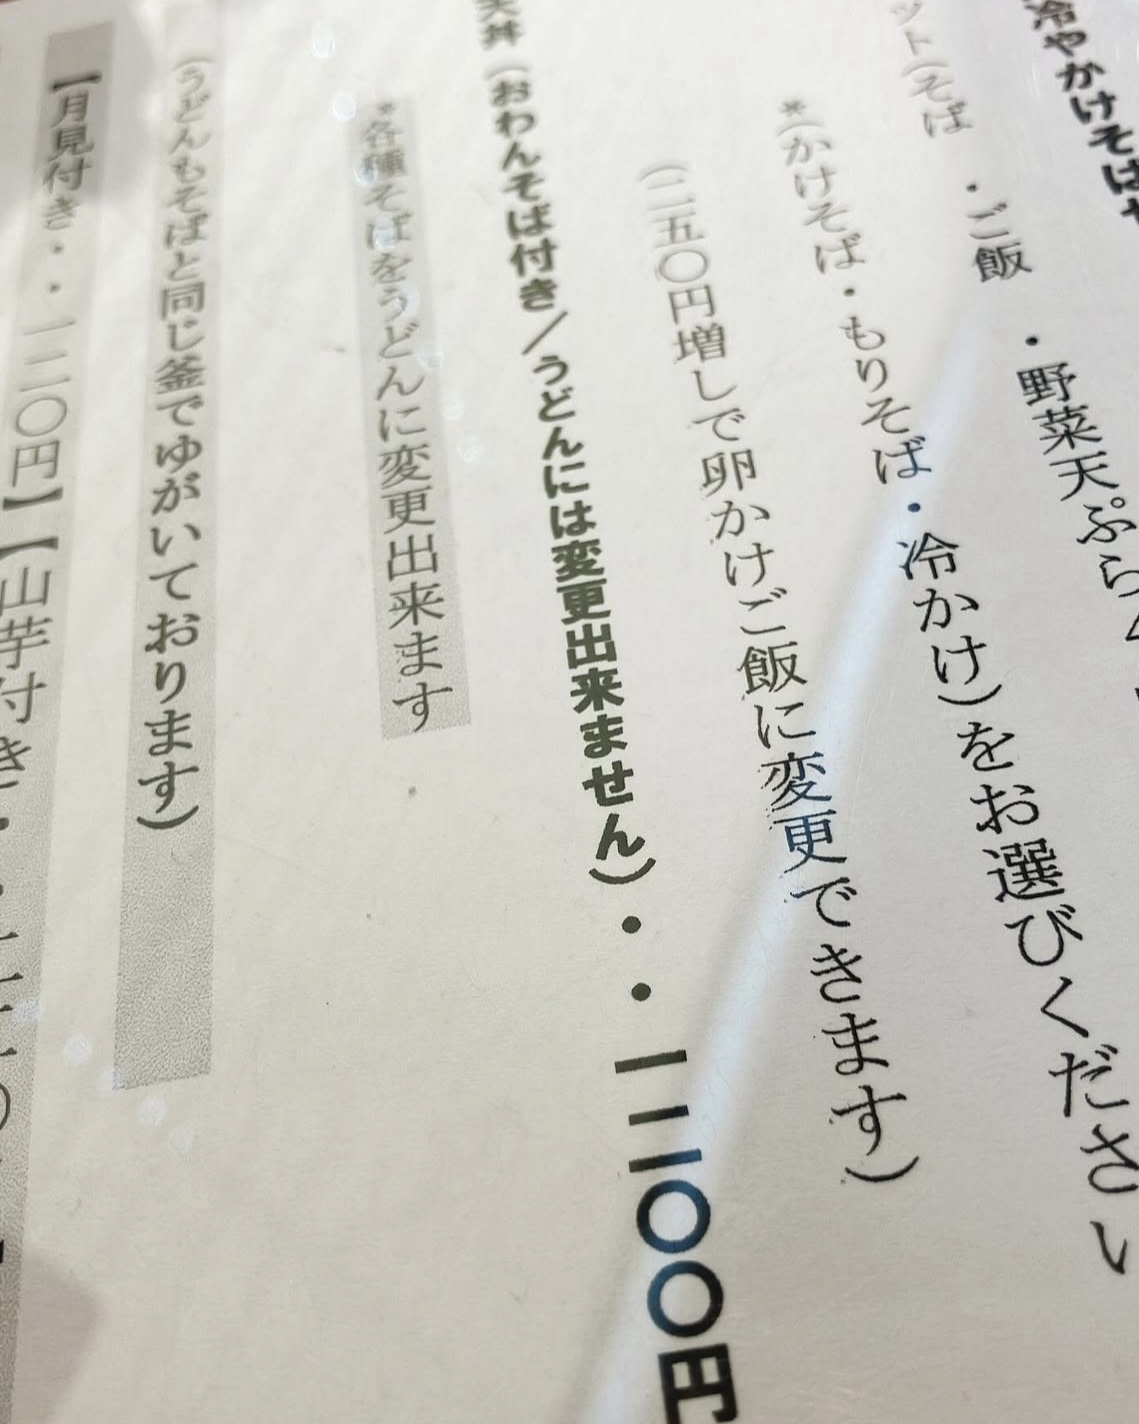 冷やかけそばや
ット(そば　・ご飯　・野菜天ぷら
*(かけそば・もりそば・冷かけ)をお選びください
(二五〇円増しで卵かけご飯に変更できます)
天丼(おわんそば付き/うどんには変更出来ません)・・一二〇〇円
*各種そばをうどんに変更出来ます
(うどんもそばと同じ釜でゆがいております)
【月見付き・・一二〇円】【山芋付き・・